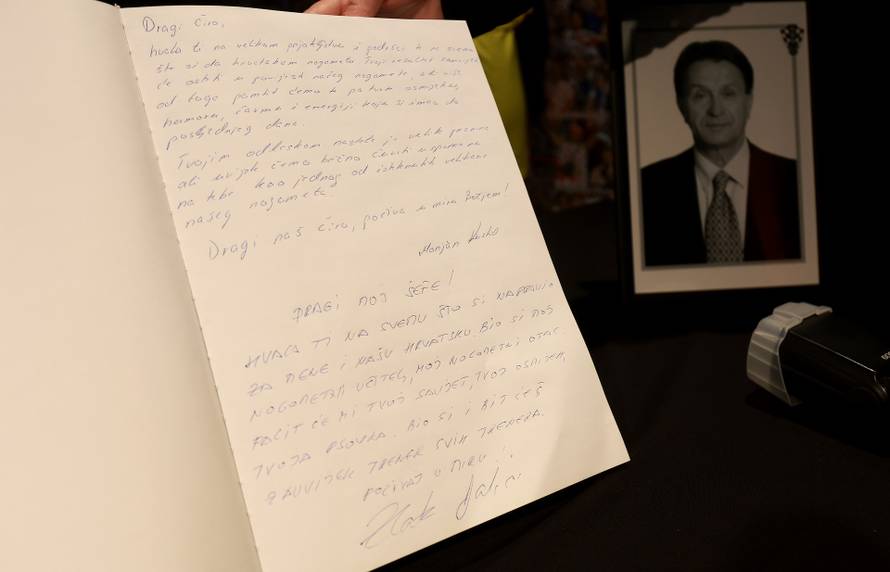 Dragi Ćiro,
hvala ti na velikom prijateljstvu i
što si dao hrvatskom nogometu. Tvoji
će ostati u našeg nogometa, ali više
od toga pamtit ćemo te po tvom osmijehu,
humoru, šarmu i energiji koju si imao do
posljednjeg dana.
Tvojim odlaskom nastala je velika praznina
ali uvijek ćemo
na tebe kao jednog od istinskih velikana
našeg nogometa.
Dragi naš Ćiro, počivaj u miru Božjem!
Marijan Kustić
DRAGI MOJ ŠEFE!
HVALA TI NA SVEMU ŠTO SI NAPRAVIO
ZA MENE I NAŠU HRVATSKU. BIO SI MOJ
NOGOMETNI UČITELJ, MOJ NOGOMETNI OTAC.
FALIT ĆE MI TVOJ SAVJET, TVOJ OSMIJEH,
TVOJA PSOVKA. BIO SI I BIT ĆEŠ
ZAUVIJEK TRENER SVIH TRENERA.
POČIVAJ U MIRU!
Zlatko Dalić